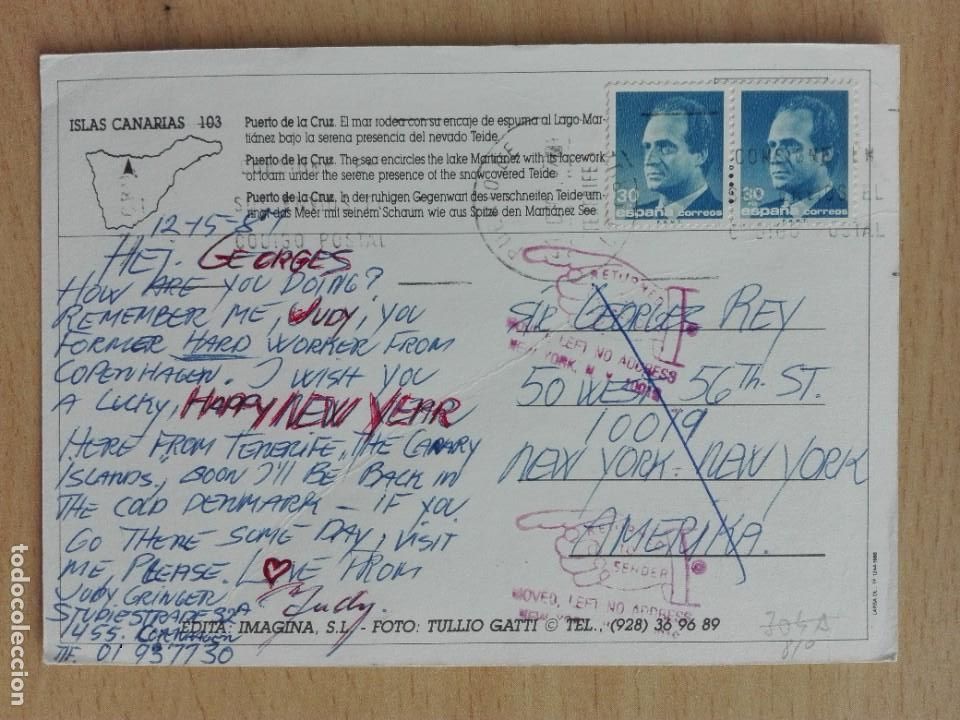 ISLAS CANARIAS 103
Puerto de la Cruz. El mar rodea con su encaje de espuma al Lago Mar-
tiánez bajo la serena presencia del nevado Teide.
Puerto de la Cruz. The sea encircles the lake Martiánez with its lacework
of foam under the serene presence of the snowcovered Teide.
Puerto de la Cruz. In der ruhigen Gegenwart des verschneiten Teide um-
ringt das Meer mit seinem Schaum wie aus Spitze den Martiánez See.
30
españa correos
30
españa correos
CODIGO POSTAL
12-15-87
HEJ. GEORGES
HOW ARE YOU DOING?
REMEMBER ME, JUDY, YOU
FORMER HARD WORKER FROM
COPENHAGEN. I WISH YOU
A LUCKY, HAPPY NEW YEAR
HERE FROM TENERIFE, THE CANARY
ISLANDS, SOON I'LL BE BACK IN
THE COLD DENMARK - IF YOU
GO THERE SOME DAY, VISIT
ME PLEASE. LOVE FROM
JUDY GRINGER Judy.
STUDIESTRADE 32A
1455. COPENHAGEN
TLF. 01 937730
SIR GEORGES REY
50 WEST 56TH ST.
10019
NEW YORK. NEW YORK
AMERIKA.
RETURNED
MOVED, LEFT NO ADDRESS
NEW YORK, N.Y. 10019
SENDER
MOVED, LEFT NO ADDRESS
EDITA: IMAGINA, S.L. - FOTO: TULLIO GATTI © TEL., (928) 36 96 89
todocoleccion